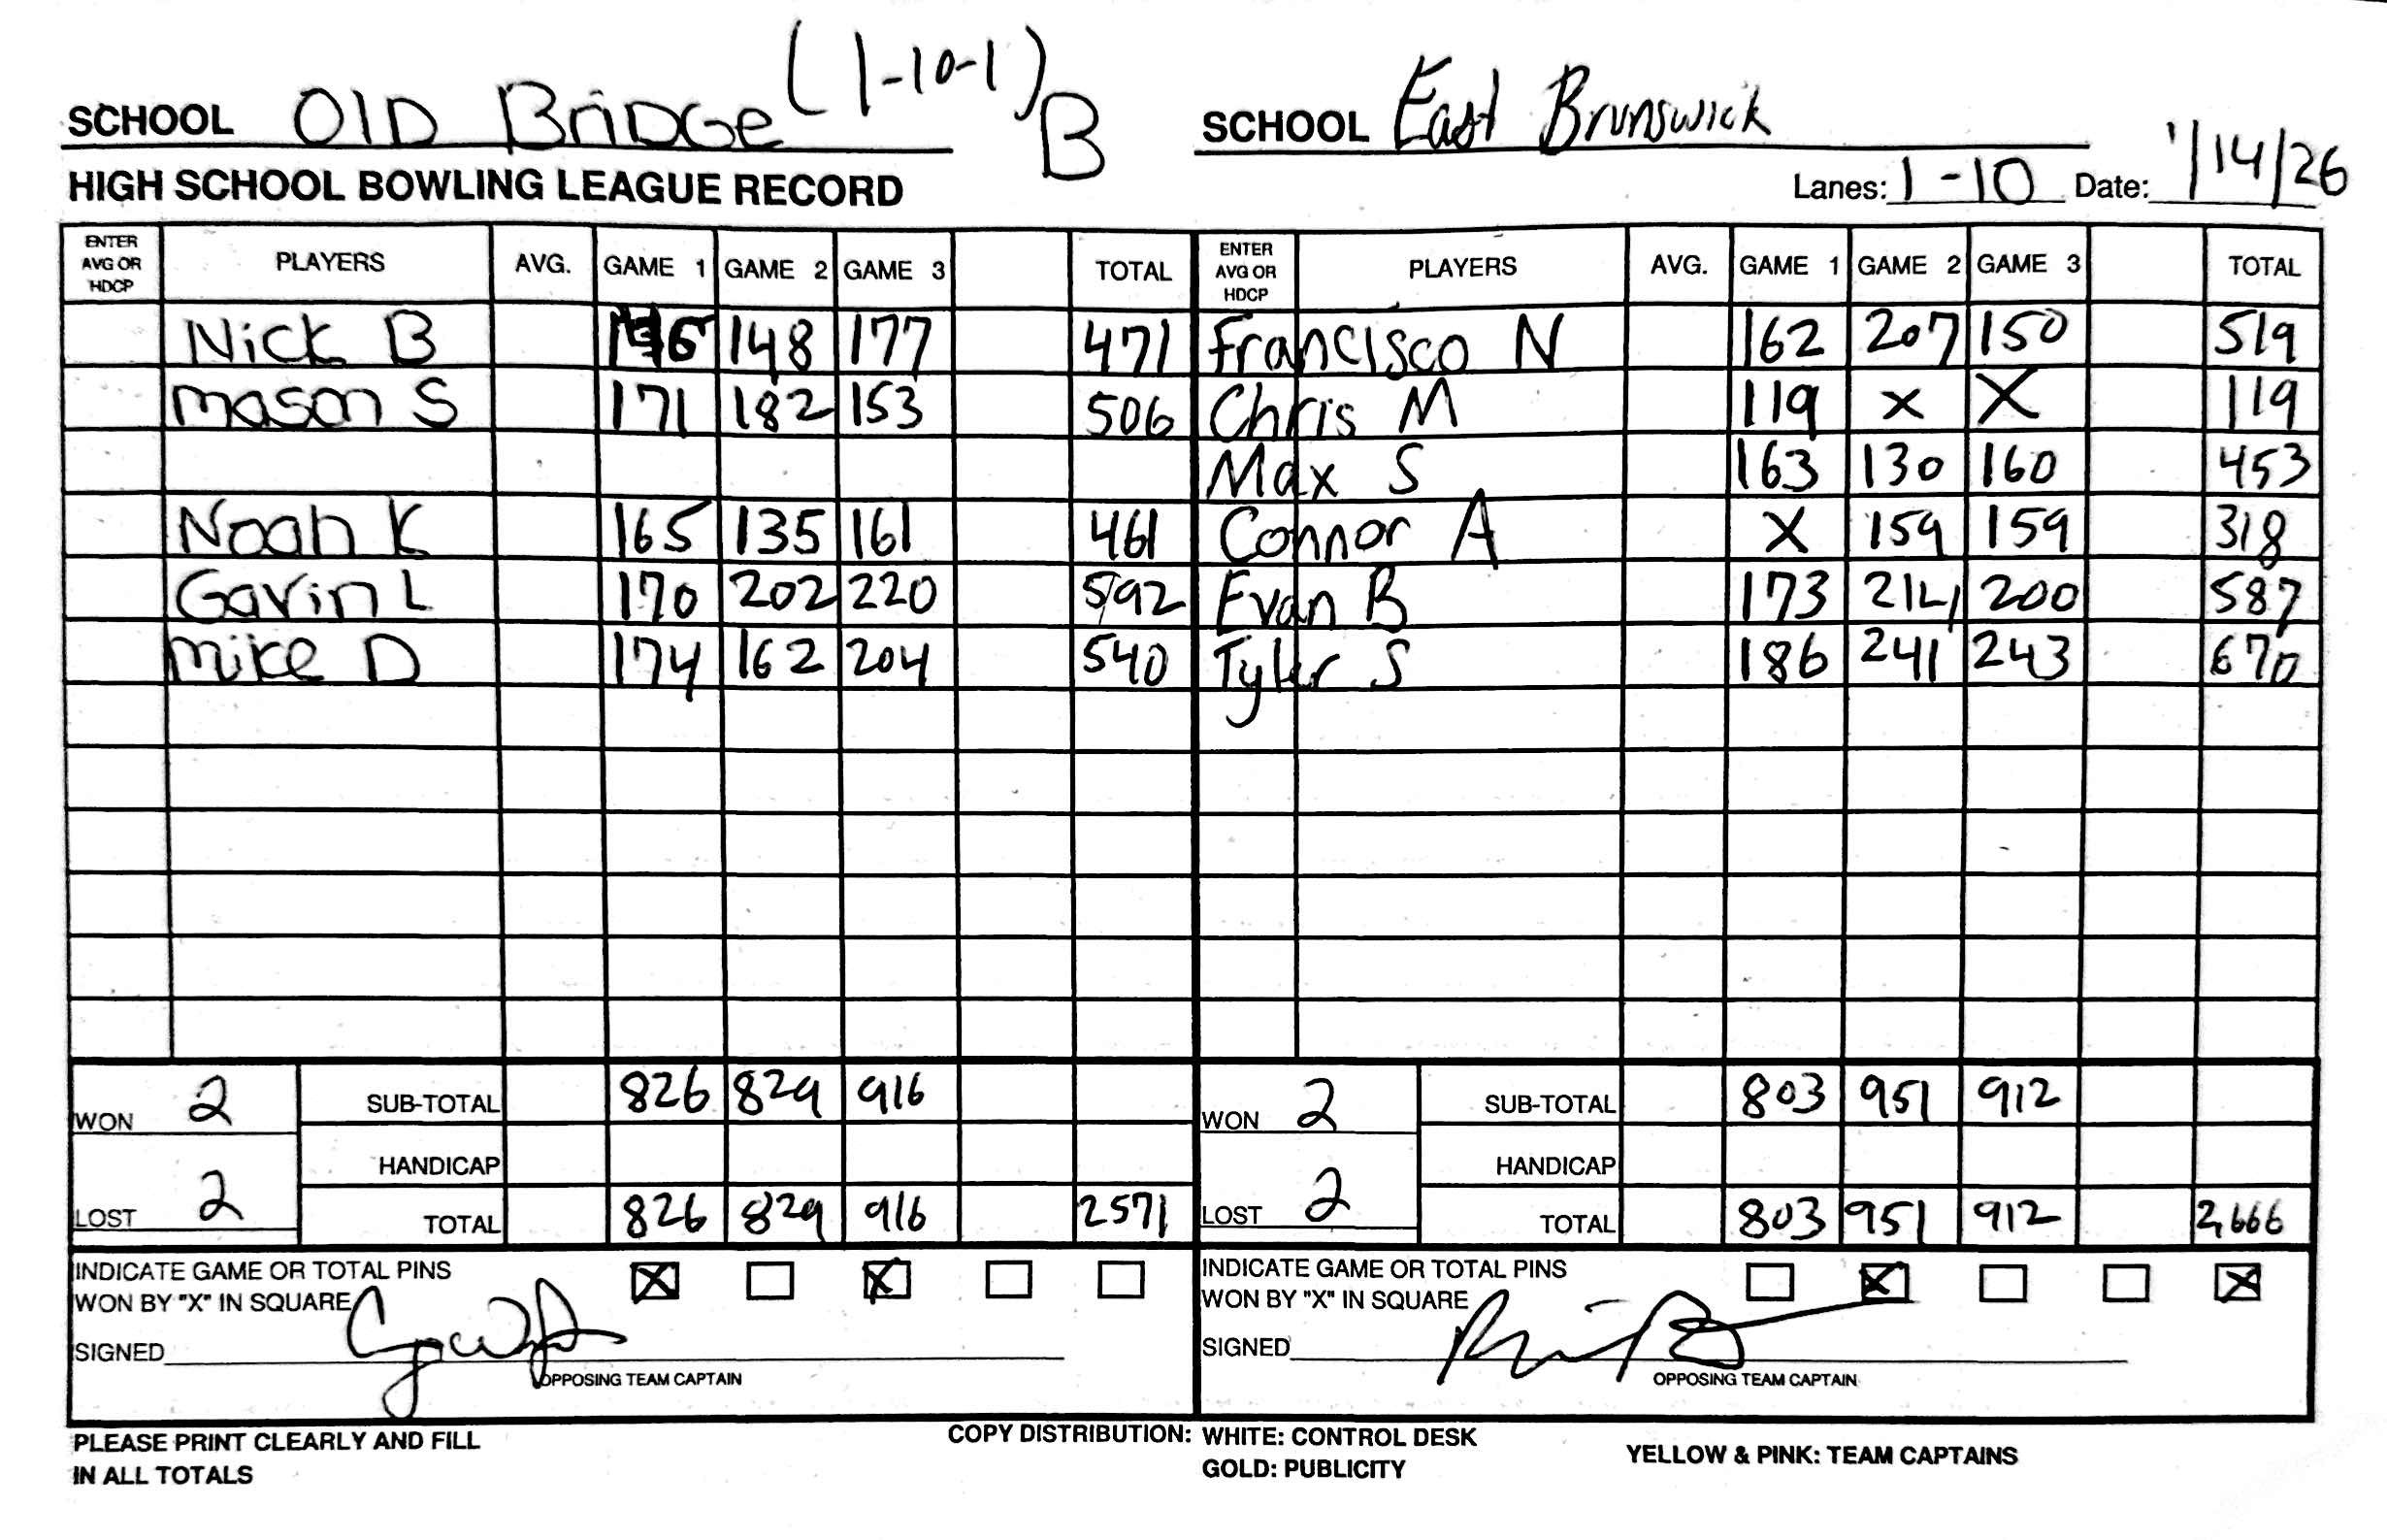 SCHOOL OlD BriDGe (1-10-1) B SCHOOL East Brunswick
HIGH SCHOOL BOWLING LEAGUE RECORD Lanes: 1-10 Date: 1/14/26
ENTER AVG OR HDCP PLAYERS AVG. GAME 1 GAME 2 GAME 3 TOTAL ENTER AVG OR HDCP PLAYERS AVG. GAME 1 GAME 2 GAME 3 TOTAL
Nick B 148 177 471 Francisco N 162 207 150 519
Mason S 171 182 153 506 Chris M 119 X X 119
Max S 163 130 160 453
Noah K 165 135 161 461 Connor A X 159 159 318
Gavin L 170 202 220 592 Evan B 173 214 200 587
Mike D 174 162 204 540 Tyler S 186 241 243 670
WON 2 SUB-TOTAL 826 829 916 WON 2 SUB-TOTAL 803 951 912
HANDICAP HANDICAP
LOST 2 TOTAL 826 829 916 2571 LOST 2 TOTAL 803 951 912 2,666
INDICATE GAME OR TOTAL PINS X X INDICATE GAME OR TOTAL PINS X X
WON BY "X" IN SQUARE WON BY "X" IN SQUARE
SIGNED SIGNED
OPPOSING TEAM CAPTAIN OPPOSING TEAM CAPTAIN
PLEASE PRINT CLEARLY AND FILL COPY DISTRIBUTION: WHITE: CONTROL DESK YELLOW & PINK: TEAM CAPTAINS
IN ALL TOTALS GOLD: PUBLICITY